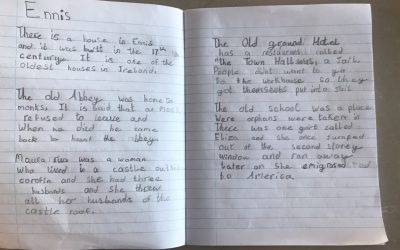 Ennis
There is a house in Ennis
and it was built in the 17th
century. It is one of the
oldest houses in Ireland.
The old Abbey was home to
monks. It is said that a monk
refused to leave and
When he died he came
back to haunt the abbey
Maura rua was a woman
who lived in a castle outside
corofin and she had three
husbands and she threw
all her husbands of the
castle roof.
The Old ground Hotel
has a restaurant called
"the Town Hall was a Jail.
People didnt want to go
to the workhouse so they
got themselfs put into Jail.
The old school was a place
were orphans were taken in
There was one girl called
Eliza and she once jumped
out of the second storey
window and ran away
Later on she emigrated
to America